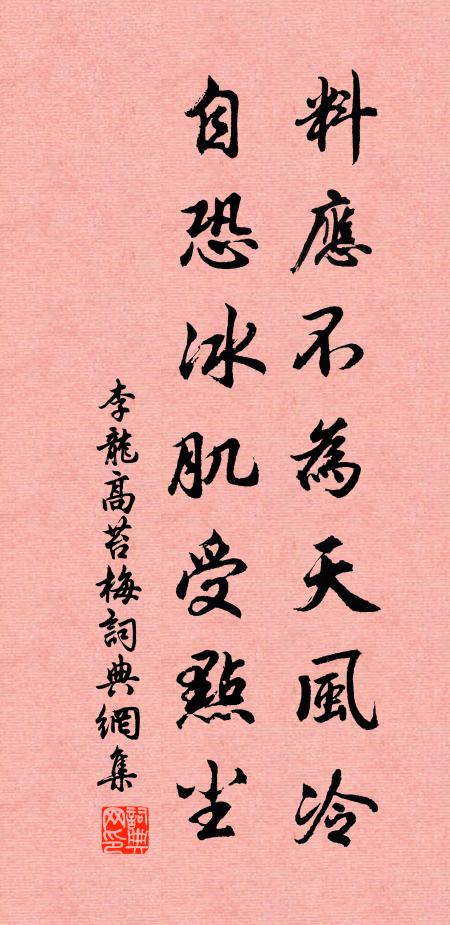 料應不為天風冷
自恐冰肌受點尘
李龍高苔梅詞典網集
詞典网印